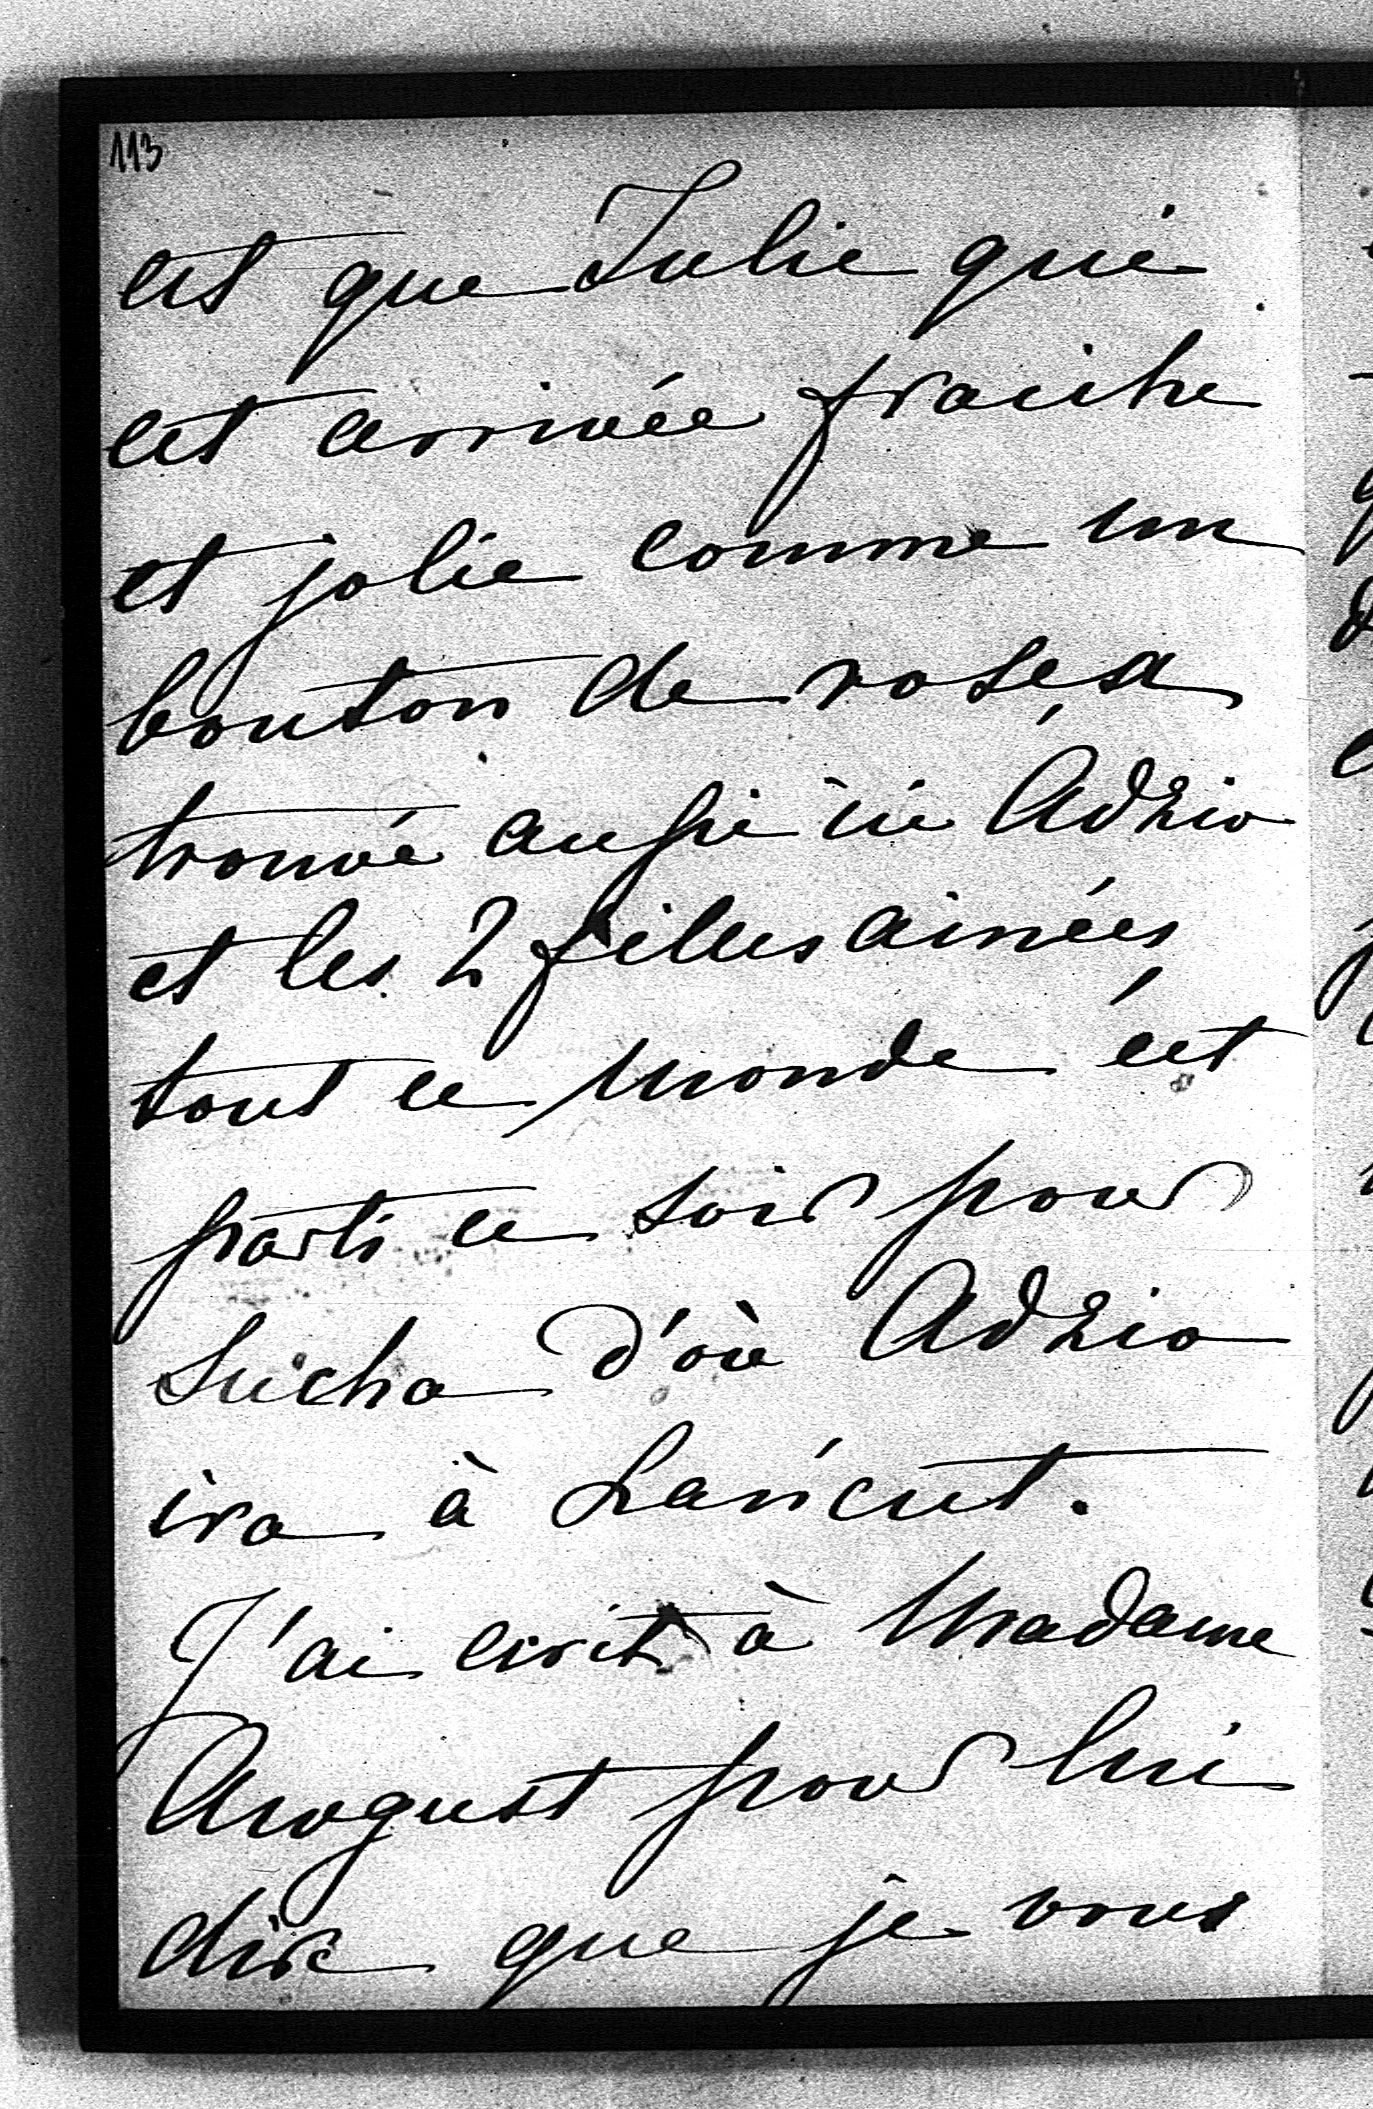 113
est que Julie qui
est arrivée fraiche
et jolie comme un
bouton de rose, a
trouvé aussi ici Adzio
et les 2 filles ainées,
tout ce monde est
parti ce soir pour
Sucha d'où Adzio
ira à Lańcut.
J'ai ecrit à Madame
August pour lui
dire que je vous